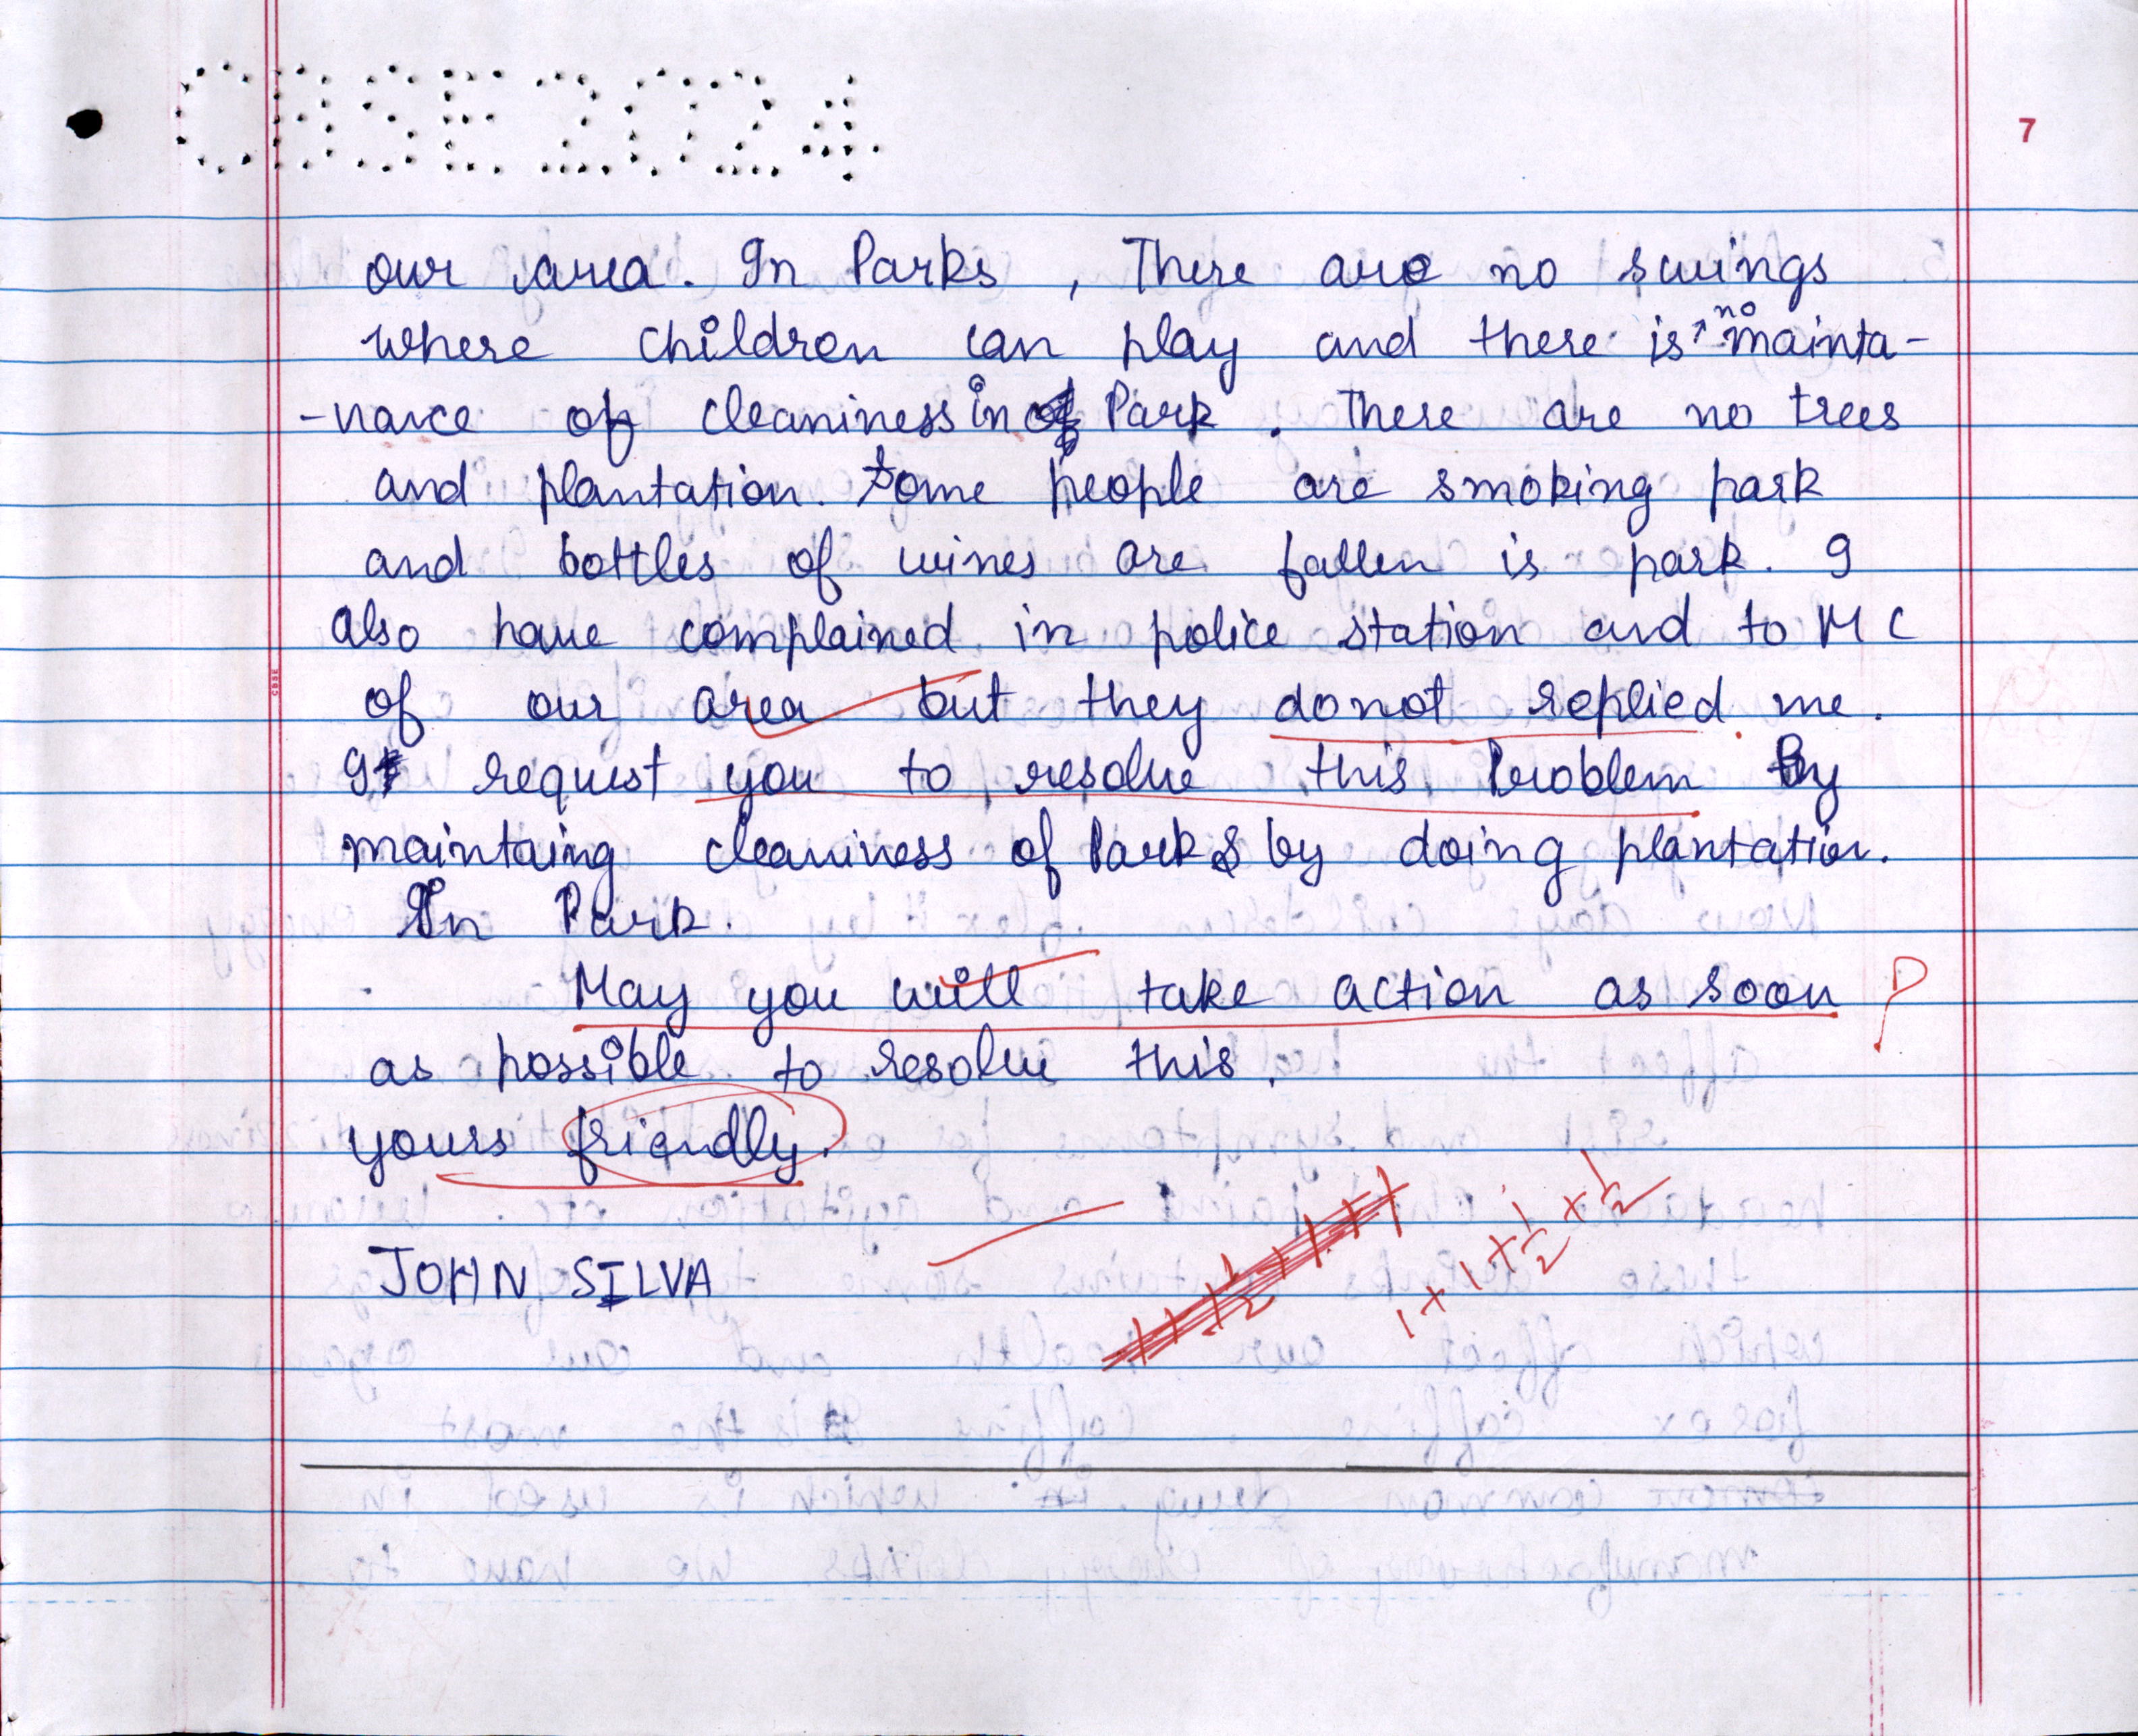 CBSE 2024
7
our area. In Parks , There are no swings
where children can play and there is no mainta-
-nance of cleaniness in Park . There are no trees
and plantation. Some people are smoking park
and bottles of wines are fallen is park. I
also have complained in police station and to MC
of our area but they donot replied me.
I request you to resolve this Problem By
maintaing cleaniness of Parks by doing plantation.
In Park.
May you will take action as soon ?
as possible to resolve this.
yours friendly.
1+1+½+½
JOHN SILVA